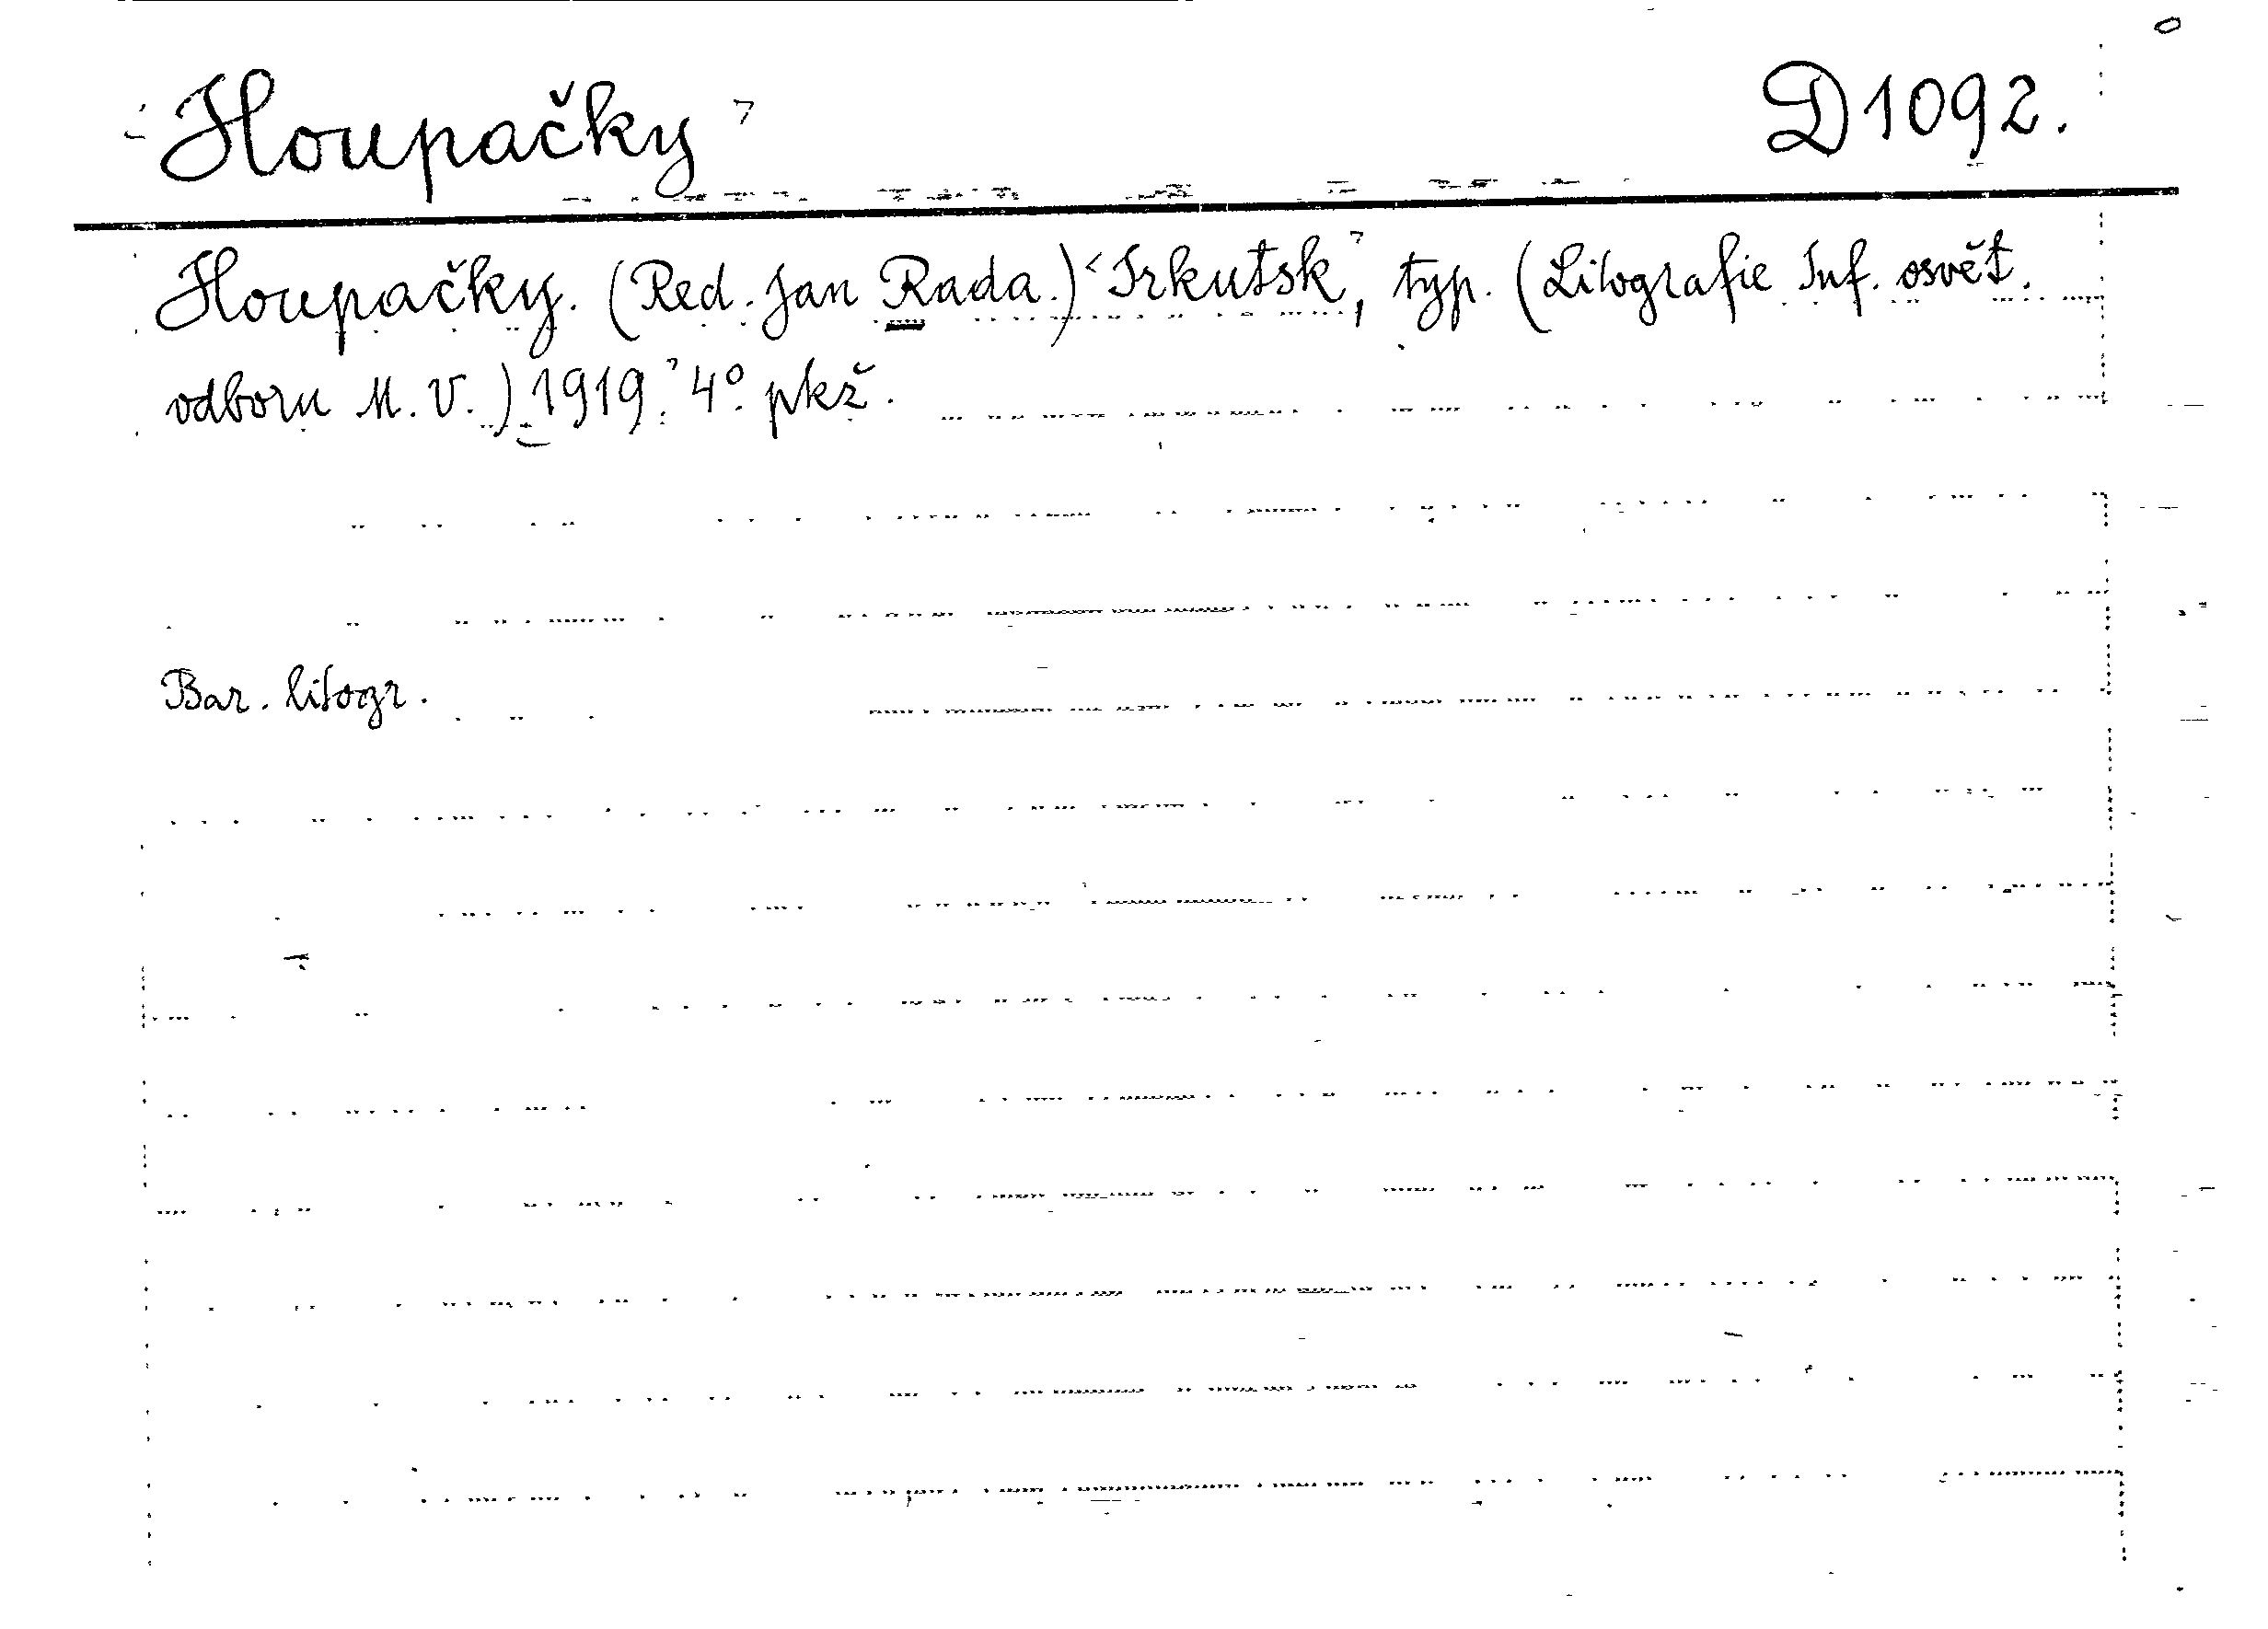 Houpačky D1092.
Houpačky. (Red. Jan Rada.) Irkutsk, typ. (Litografie Inf. osvět.
odboru M. V.) 1919. 4° pkž.
Bar. litogr.